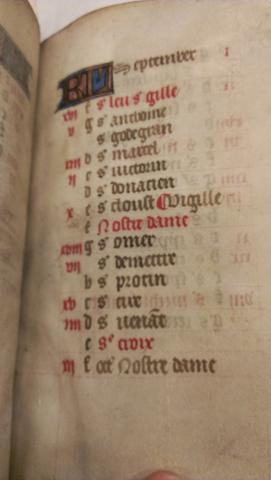 KL September
xvi f s' leu s' gille
v g s' anthoine
s' godegran
xiii d s' marcel
ii c s' victorin
d s' donatien
x e s' cloust Vigille
f Nostre dame
xviii g s' omer
vii s' demettre
b s' protin
xv c s' cire
iiii d s' venāt
e s'e croix
xii f oct' Nostre dame